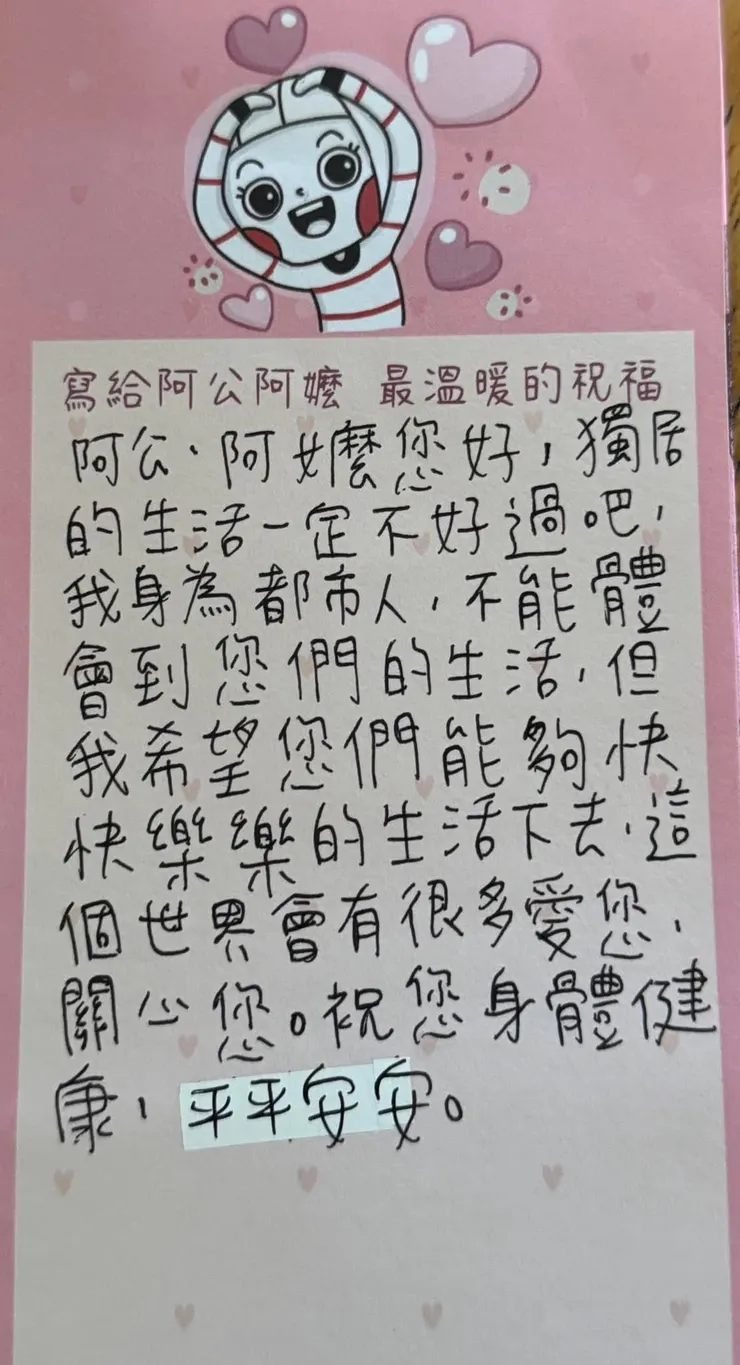 寫給阿公阿嬤 最溫暖的祝福
阿公、阿嬤您好，獨居
的生活一定不好過吧，
我身為都市人，不能體
會到您們的生活，但
我希望您們能夠快
快樂樂的生活下去，這
個世界會有很多愛您，
關心您。祝您身體健
康，平平安安。